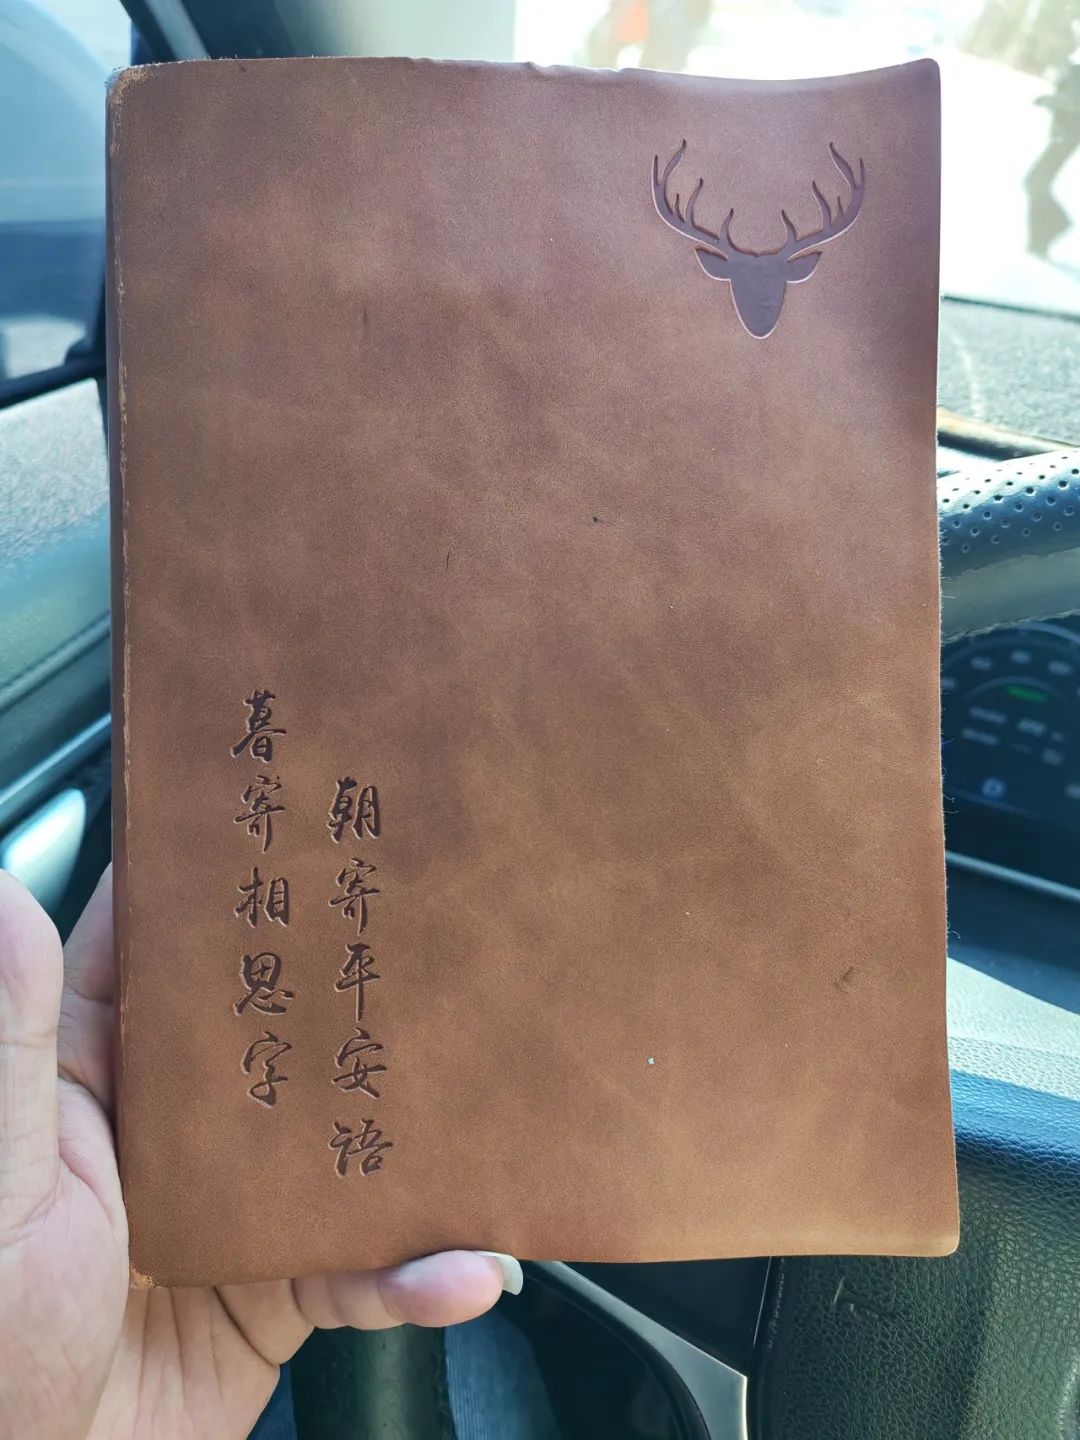 朝寄平安语
暮寄相思字